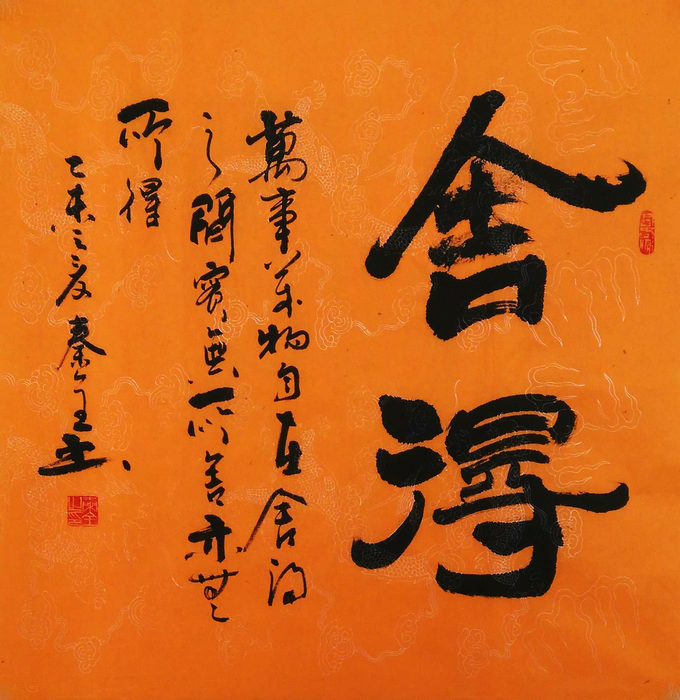 舍得
萬事萬物自在舍得
之間實無所舍亦無
所得
乙未之夏秦全書